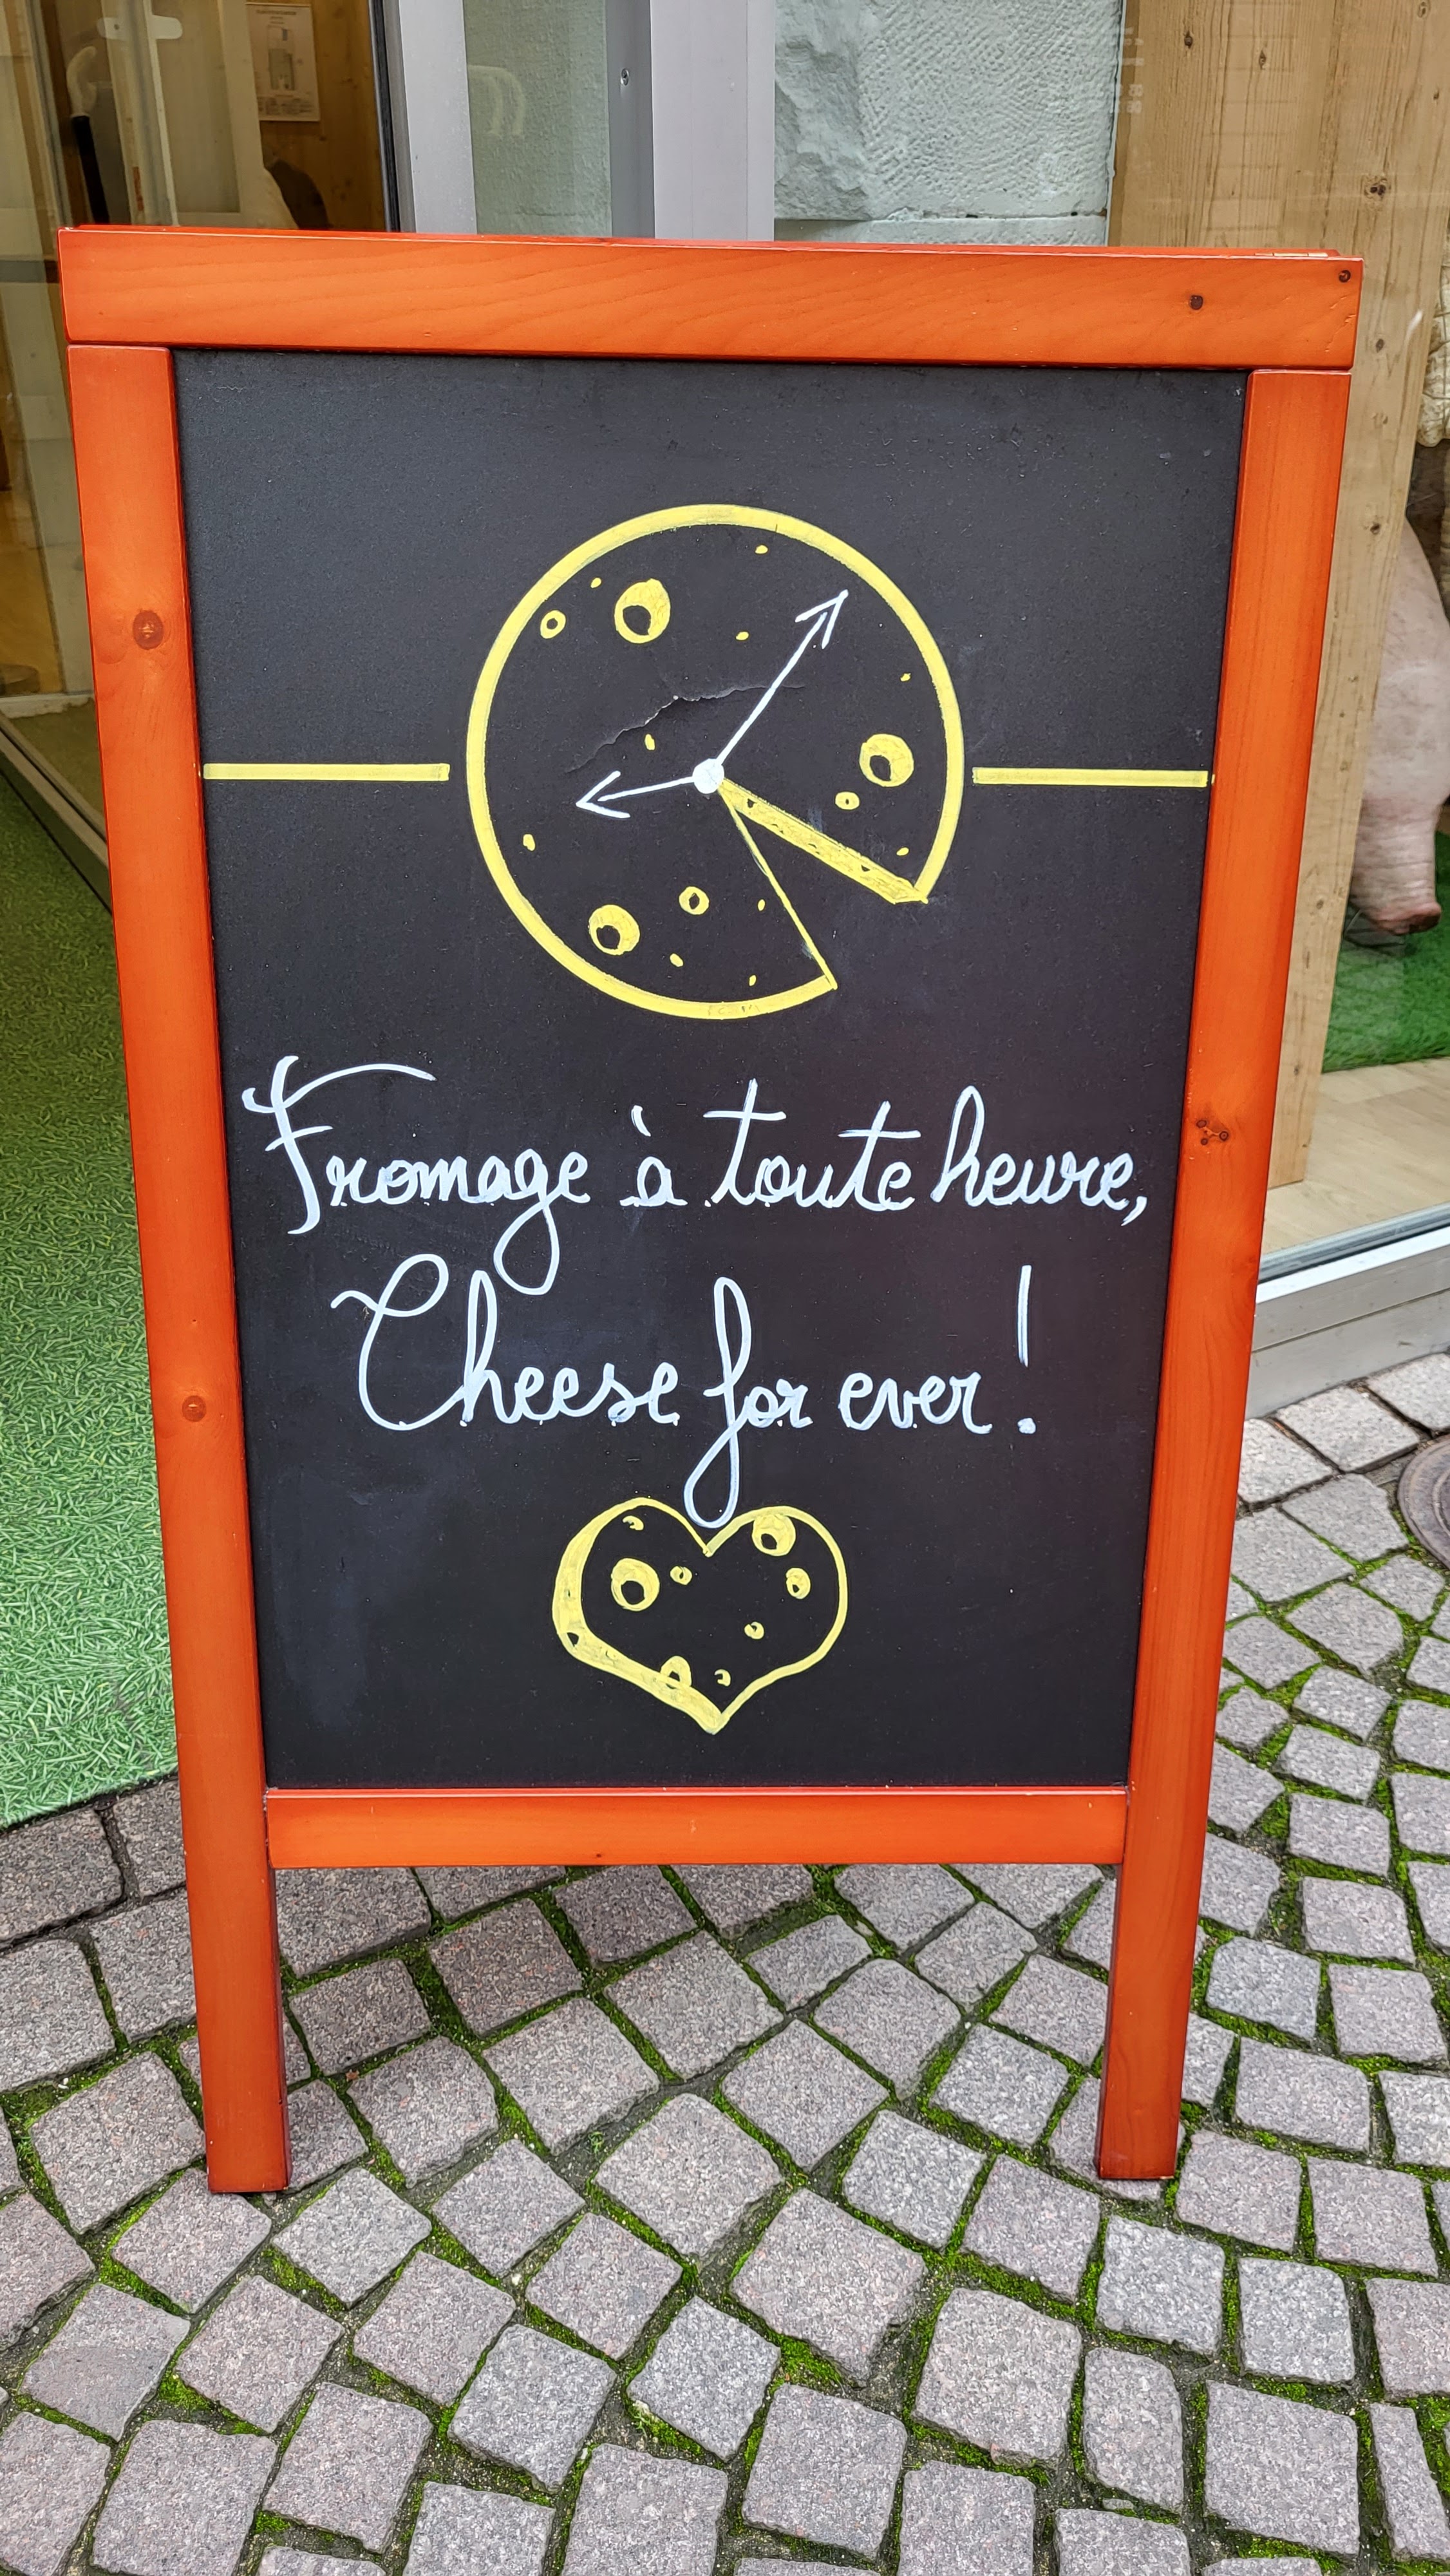 Fromage à toute heure,
Cheese for ever !